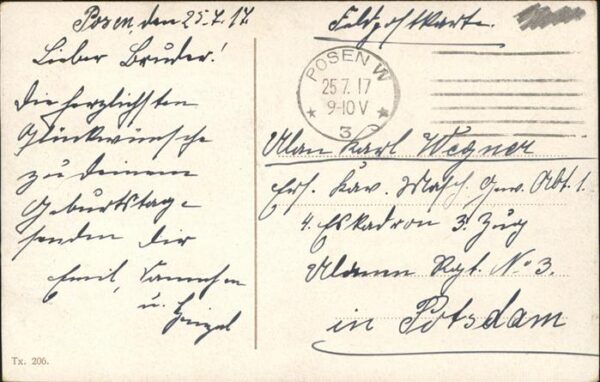 Posen, den 25.7.17.
Lieber Bruder!
Die herzlichsten
Glückwünsche
zu deinem
Geburtstage
senden dir
Emil,
u.
Feldpostkarte.
POSEN W
25.7.17
9-10 V
* 3 *
Ulan Karl Wegner
Ers. Kav. Masch. Gew. Abt. 1.
4. Eskadron 3. Zug
Ulanen Regt. No 3.
in Potsdam
Tx. 206.